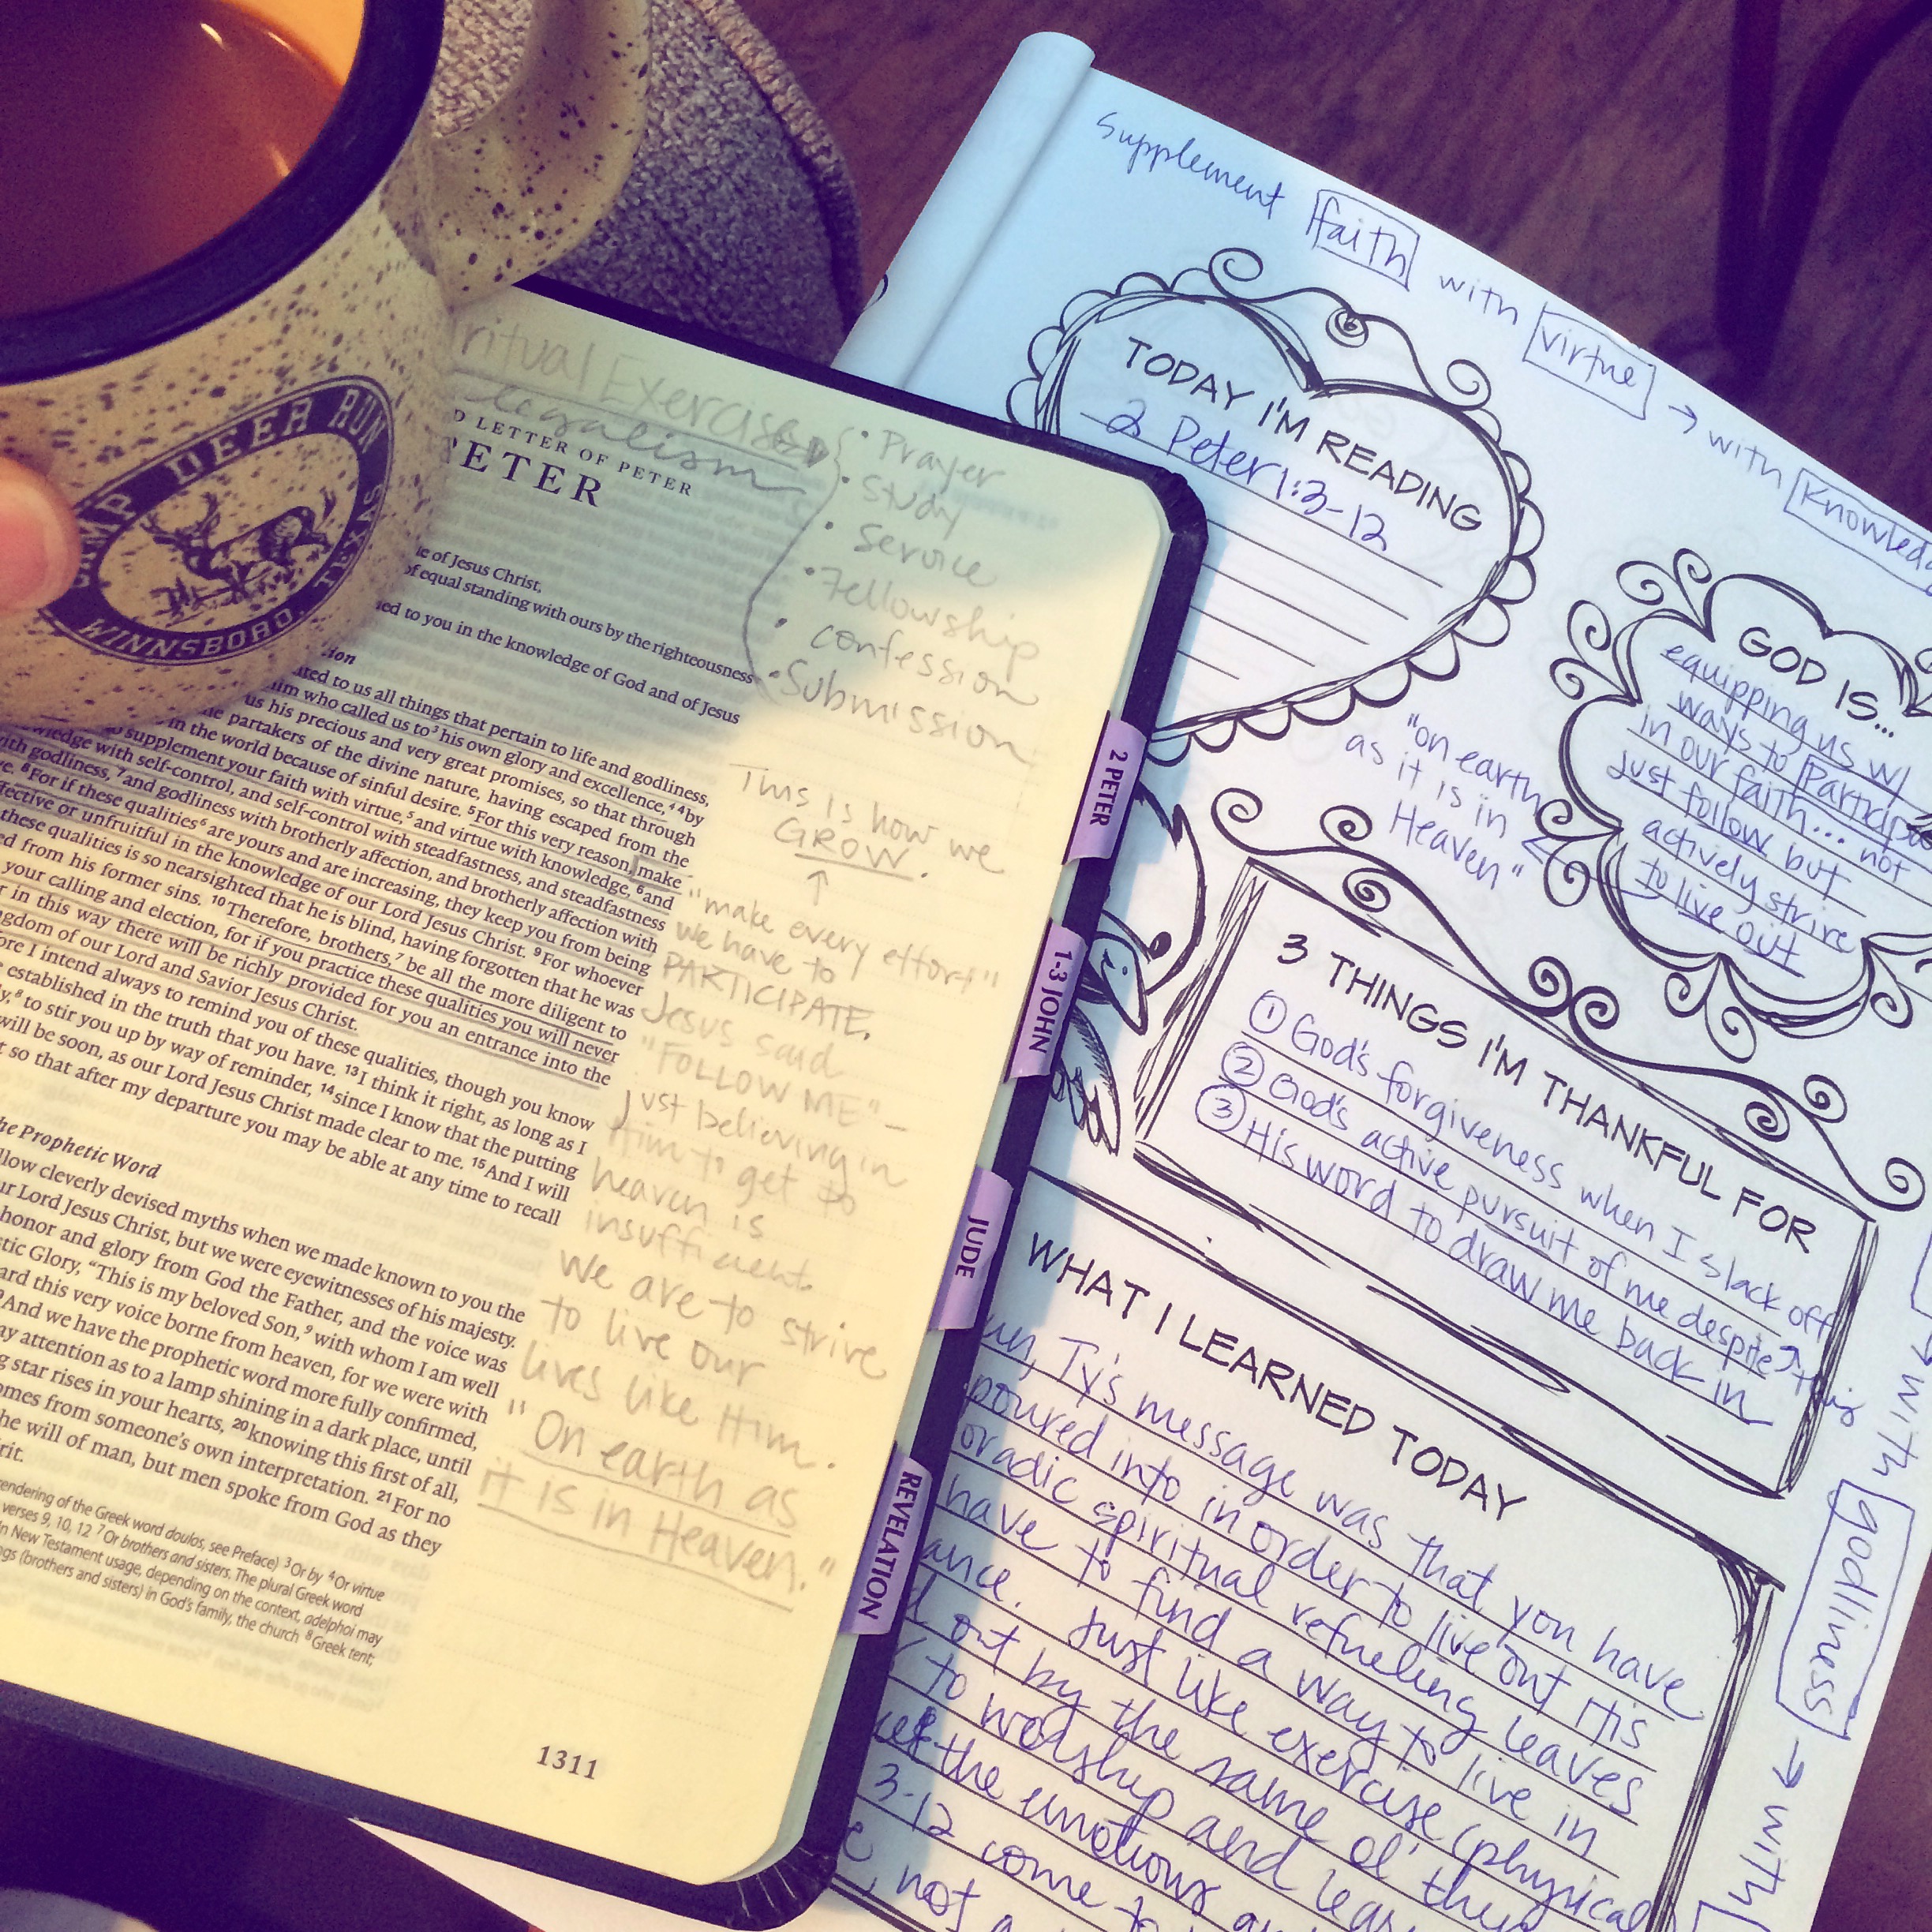 CAMP DEER RUN
WINNSBORO, TEXAS
ritual Exercises
legalism
D LETTER OF PETER
PETER
• Prayer
• Study
• Service
• Fellowship
• confession
• Submission
le of Jesus Christ,
of equal standing with ours by the righteousness
ied to you in the knowledge of God and of Jesus
ted to us all things that pertain to life and godliness,
him who called us to³ his own glory and excellence,⁴ ⁴by
us his precious and very great promises, so that through
he partakers of the divine nature, having escaped from the
in the world because of sinful desire. ⁵For this very reason, make
supplement your faith with virtue,⁵ and virtue with knowledge, ⁶and
wledge with self-control, and self-control with steadfastness, and steadfastness
ith godliness, ⁷and godliness with brotherly affection, and brotherly affection with
ve. ⁸For if these qualities⁶ are yours and are increasing, they keep you from being
ffective or unfruitful in the knowledge of our Lord Jesus Christ. ⁹For whoever
these qualities is so nearsighted that he is blind, having forgotten that he was
ed from his former sins. ¹⁰Therefore, brothers,⁷ be all the more diligent to
your calling and election, for if you practice these qualities you will never
r in this way there will be richly provided for you an entrance into the
ngdom of our Lord and Savior Jesus Christ.
ore I intend always to remind you of these qualities, though you know
e established in the truth that you have. ¹³I think it right, as long as I
ly,⁸ to stir you up by way of reminder, ¹⁴since I know that the putting
will be soon, as our Lord Jesus Christ made clear to me. ¹⁵And I will
t so that after my departure you may be able at any time to recall
he Prophetic Word
llow cleverly devised myths when we made known to you the
ur Lord Jesus Christ, but we were eyewitnesses of his majesty.
honor and glory from God the Father, and the voice was
stic Glory, “This is my beloved Son,⁹ with whom I am well
ard this very voice borne from heaven, for we were with
And we have the prophetic word more fully confirmed,
ay attention as to a lamp shining in a dark place, until
g star rises in your hearts, ²⁰knowing this first of all,
omes from someone's own interpretation. ²¹For no
he will of man, but men spoke from God as they
rit.
endering of the Greek word doulos, see Preface) ³Or by ⁴Or virtue
verses 9, 10, 12 ⁷Or brothers and sisters. The plural Greek word
In New Testament usage, depending on the context, adelphoi may
ngs (brothers and sisters) in God's family, the church ⁸Greek tent;
1311
This is how we
GROW.
↑
"make every effort"
we have to
PARTICIPATE.
Jesus said
"FOLLOW ME" –
Just believing in
Him to get to
heaven is
insufficient.
We are to strive
to live our
lives like Him.
"On earth as
it is in Heaven."
2 PETER
1-3 JOHN
JUDE
REVELATION
Supplement faith with virtue → with knowled
TODAY I'M READING
2 Peter 1:3-12
GOD IS...
equipping us w/
ways to participa
in our faith... not
just follow but
actively strive
to live out
"on earth
as it is in
Heaven"
3 THINGS I'M THANKFUL FOR
① God's forgiveness when I slack off
② God's active pursuit of me despite this
③ His word to draw me back in
WHAT I LEARNED TODAY
Ty's message was that you have
poured into in order to live out His
oradic spiritual refueling leaves
have to find a way to live in
ance. Just like exercise (physical
out by the same ol' thin
to worship and lear
the emotions
3-12 come to
not a
→ with godliness → with